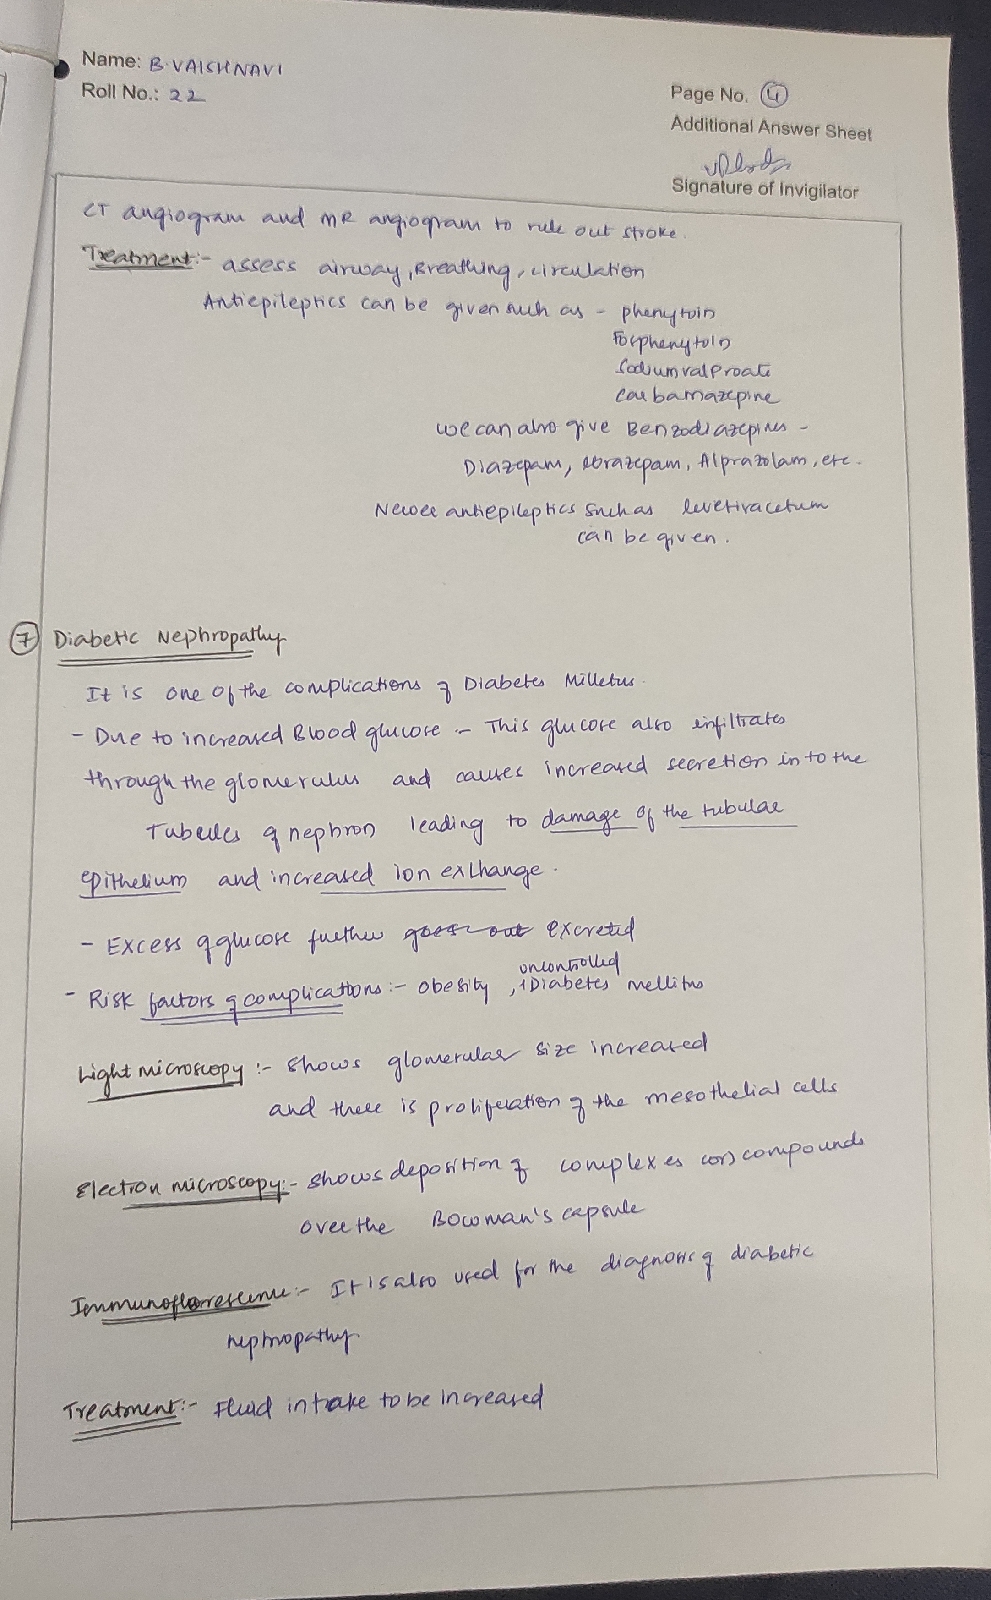 Name: B.VAISHNAVI
Roll No.: 22
Page No. 4
Additional Answer Sheet
Signature of Invigilator
CT angiogram and MR angiogram to rule out stroke.
Treatment:- assess airway, Breathing, circulation
Antiepileptics can be given such as - phenytoin
Fosphenytoin
Sodium valproate
Carbamazepine
we can also give Benzodiazepines -
Diazepam, lorazepam, Alprazolam, etc.
Newer antiepileptics such as levetiracetum
can be given.
7 Diabetic Nephropathy
It is one of the complications of Diabetes Milletus.
- Due to increased Blood glucose - This glucose also infiltrates
through the glomerulus and causes increased secretion into the
Tubules of nephron leading to damage of the tubular
epithelium and increased ion exchange.
- Excess of glucose further goes out excreted
- Risk factors of complications:- obesity, uncontrolled Diabetes mellitus
Light microscopy :- shows glomerular size increased
and there is proliferation of the mesothelial cells
Electron microscopy:- shows deposition of complexes (or) compounds
over the Bowman's capsule
Immunoflorescence:- It is also used for the diagnosis of diabetic
nephropathy.
Treatment:- Fluid intake to be increased